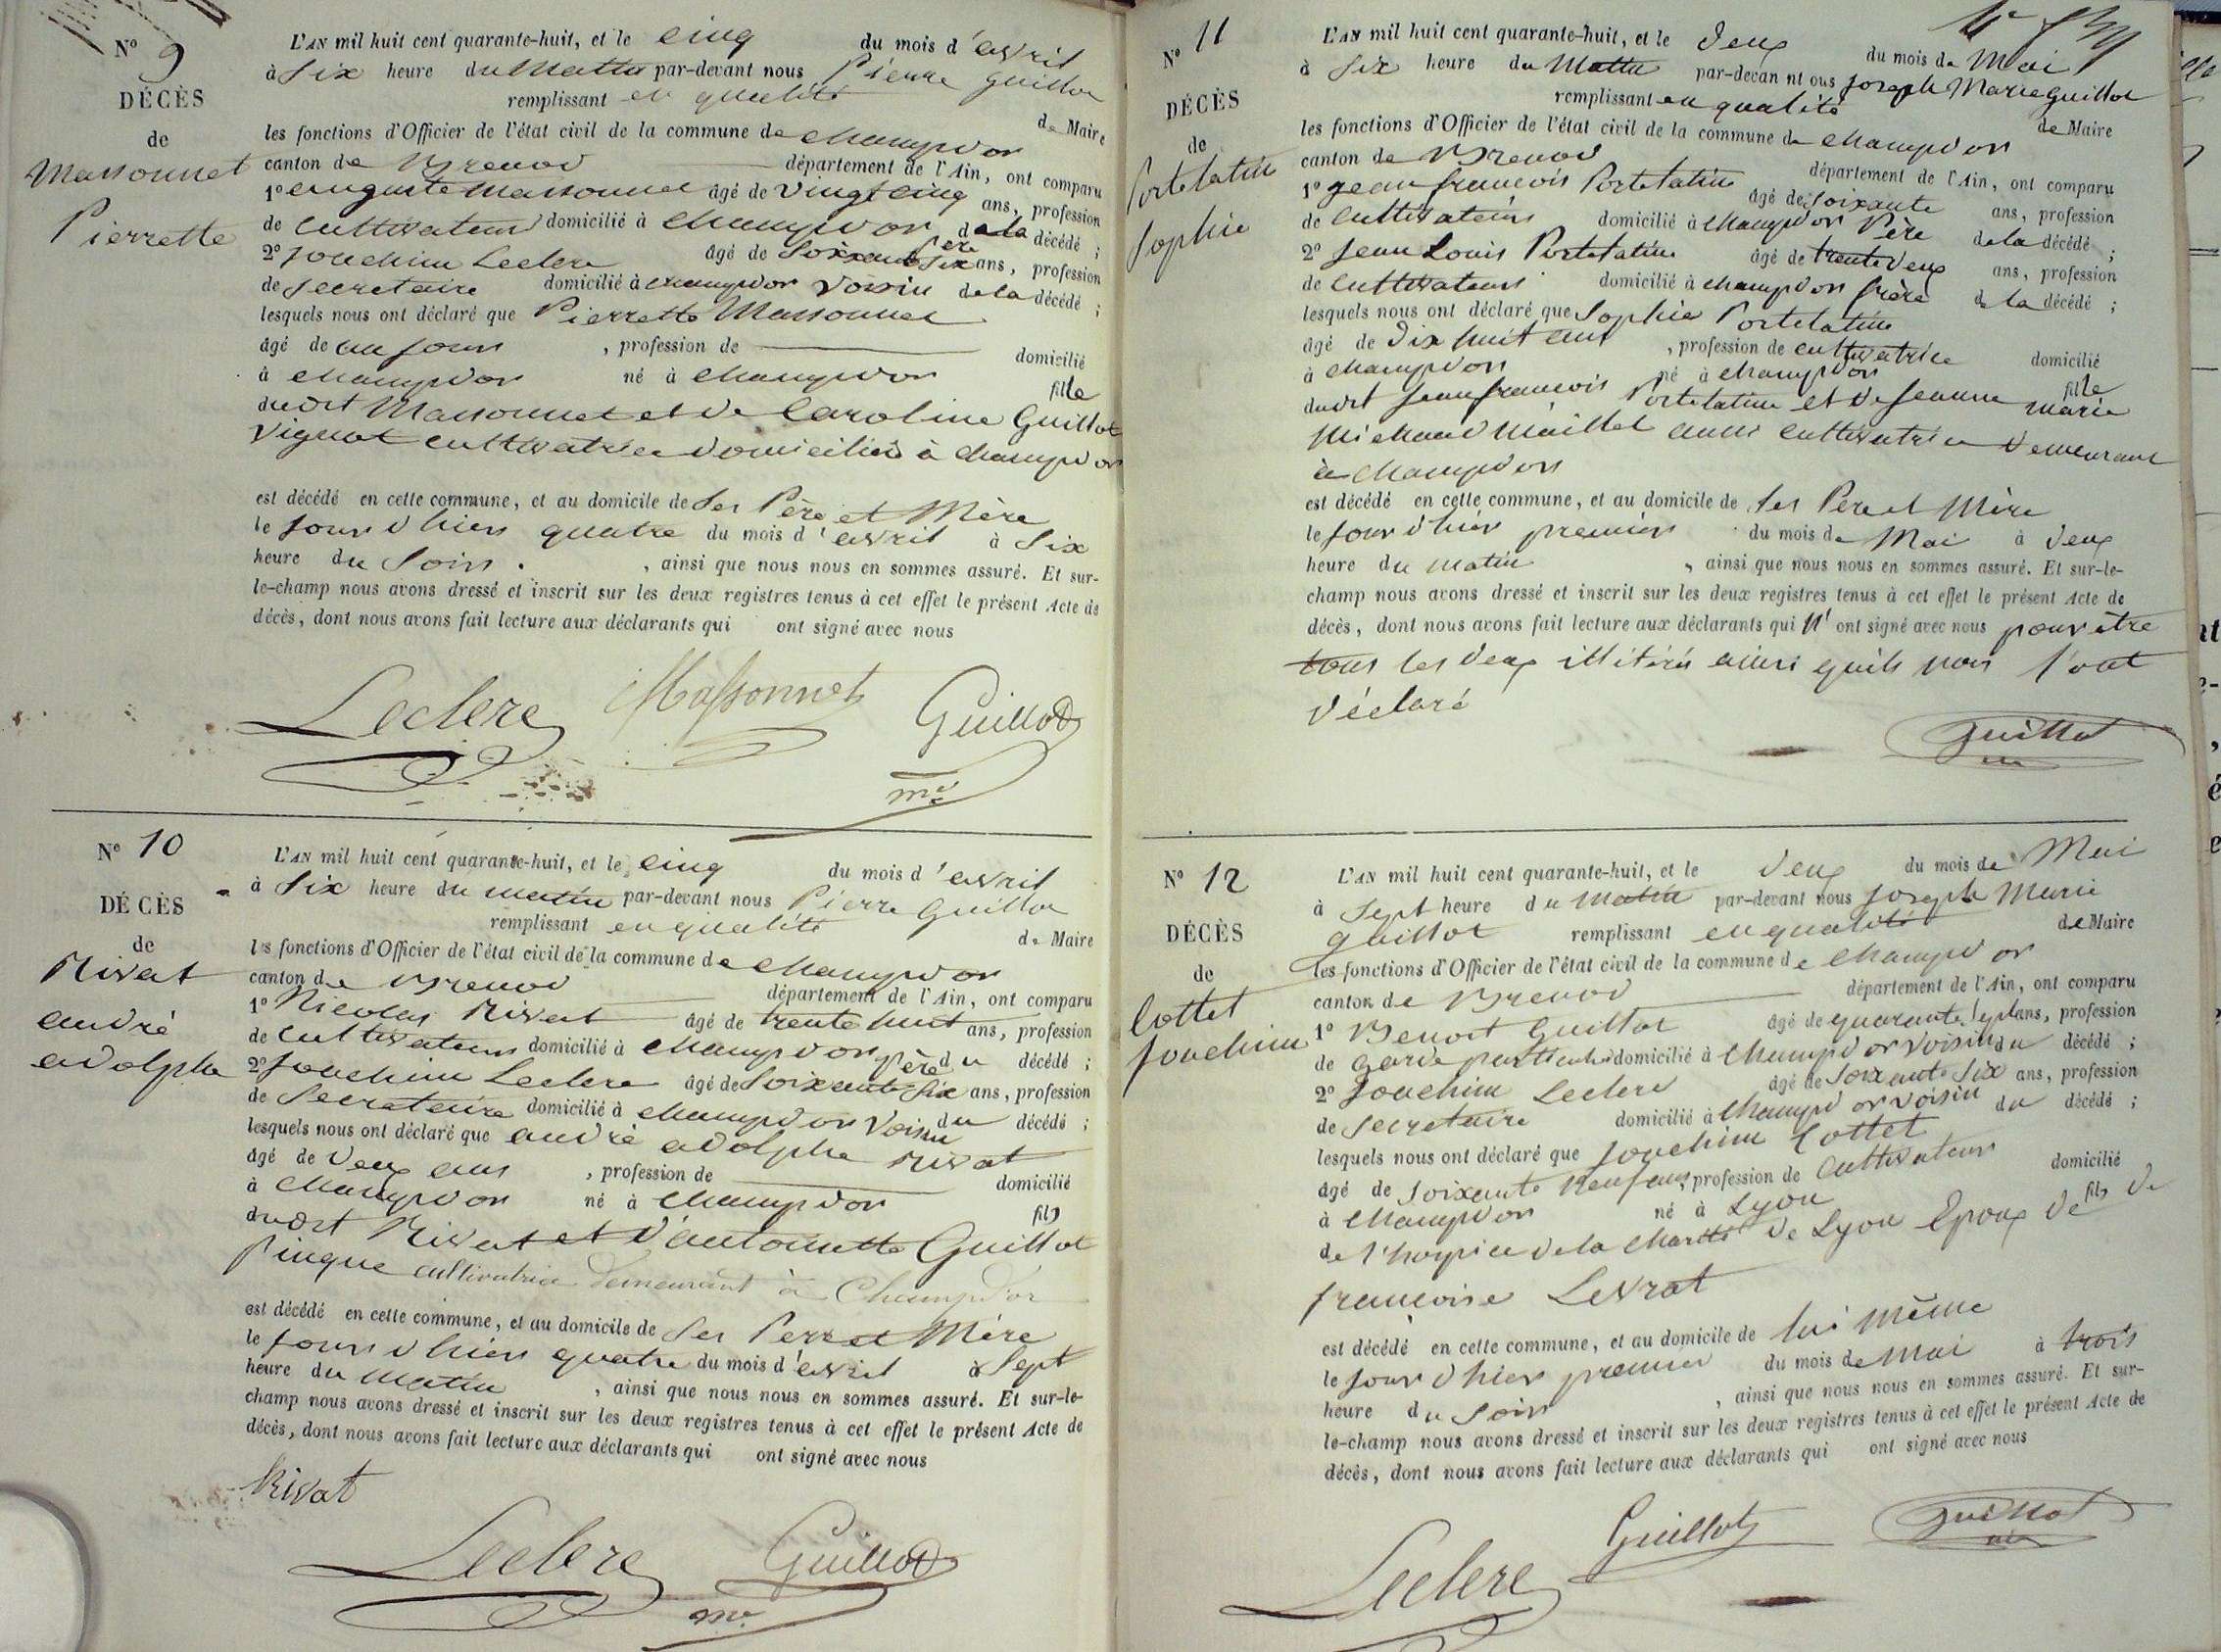 N° 9
DÉCÈS
de
Massonnet
Pierrette
L'AN mil huit cent quarante-huit, et le cinq du mois d'avril
à Six heure du Matin par-devant nous Pierre Guillot
remplissant en qualité de Maire
les fonctions d'Officier de l'état civil de la commune de Champdor
canton de Brenod département de l'Ain, ont comparu
1° auguste Massonnet âgé de vingt cinq ans, profession
de Cultivateur domicilié à Champdor Père de la décédé ;
2° Jouchim Leclerc âgé de Soixante Six ans, profession
de Secretaire domicilié à Champdor Voisin de la décédé ;
lesquels nous ont déclaré que Pierrette Massonnet
âgé de un jour , profession de domicilié
à Champdor né à Champdor fille
dudit Massonnet et de Caroline Guillot
Vignot cultivatrice domiciliés à Champdor
est décédé en cette commune, et au domicile de Ses Père et Mère
le jour d'hier quatre du mois d'avril à Six
heure du Soir. , ainsi que nous nous en sommes assuré. Et sur-
le-champ nous avons dressé et inscrit sur les deux registres tenus à cet effet le présent Acte de
décès, dont nous avons fait lecture aux déclarants qui ont signé avec nous
Leclerc Massonnet Guillot
me
N° 10
DÉCÈS
de
Rivat
andré
adolphe
L'AN mil huit cent quarante-huit, et le cinq du mois d'avril
à Six heure du matin par-devant nous Pierre Guillot
remplissant en qualité de Maire
les fonctions d'Officier de l'état civil de la commune de Champdor
canton de Brenod département de l'Ain, ont comparu
1° Nicolas Rivat âgé de trente huit ans, profession
de Cultivateur domicilié à Champdor père du décédé ;
2° Jouchim Leclerc âgé de Soixante Six ans, profession
de Secretaire domicilié à Champdor Voisin du décédé ;
lesquels nous ont déclaré que andré adolphe Rivat
âgé de Deux ans , profession de domicilié
à Champdor né à Champdor fils
dudit Rivat et d'antoinette Guillot
Pingue cultivatrice demeurant à Champdor
est décédé en cette commune, et au domicile de Ses Perret Mére
le jour d'hier quatre du mois d'avril à Sept
heure du matin , ainsi que nous nous en sommes assuré. Et sur-le-
champ nous avons dressé et inscrit sur les deux registres tenus à cet effet le présent Acte de
décès, dont nous avons fait lecture aux déclarants qui ont signé avec nous
Rivat
Leclerc Guillot
me
N° 11
DÉCÈS
de
Portelatine
Sophie
L'AN mil huit cent quarante-huit, et le Deux du mois de Mai
à Six heure du Matin par-devan nt ous Joseph Marie Guillot
remplissant en qualité de Maire
les fonctions d'Officier de l'état civil de la commune de Champdor
canton de Brenod département de l'Ain, ont comparu
1° Jean françois Portelatine âgé de Soixante ans, profession
de Cultivateur domicilié à Champdor Père de la décédé ;
2° Jean Louis Portelatine âgé de trente deux ans, profession
de Cultivateur domicilié à Champdor frère de la décédé ;
lesquels nous ont déclaré que Sophie Portelatine
âgé de Dix huit ans , profession de cultivatrice domicilié
à Champdor né à Champdor fille
dudit Jean francois Portelatine et de Jeanne marie
Michaud Maillet aussi cultivatrice demeurant
à Champdor
est décédé en cette commune, et au domicile de Ses Pere et Mère
le jour d'hier premier du mois de Mai à deux
heure du matin , ainsi que nous nous en sommes assuré. Et sur-le-
champ nous avons dressé et inscrit sur les deux registres tenus à cet effet le présent Acte de
décès, dont nous avons fait lecture aux déclarants qui n'ont signé avec nous pour être
tous les deux illitérés ainsi quils nous l'ont
Déclaré
Guillot
N° 12
DÉCÈS
de
Cottet
Jouchim
L'AN mil huit cent quarante-huit, et le Deux du mois de Mai
à Sept heure du Matin par-devant nous Joseph Marie
Guillot remplissant en qualité de Maire
les fonctions d'Officier de l'état civil de la commune de Champdor
canton de Brenod département de l'Ain, ont comparu
1° Benoit Guillot âgé de quarante Sept ans, profession
de Garde particulier domicilié à Champdor voisin du décédé ;
2° Jouchim Leclerc âgé de Soixante Six ans, profession
de Secretaire domicilié à Champdor voisin du décédé ;
lesquels nous ont déclaré que Jouchim Cottet
âgé de Soixante Neuf ans, profession de Cultivateur domicilié
à Champdor né à Lyon fils de
de l'hospice de la Charité de Lyon Epoux de
francoise Levrat
est décédé en cette commune, et au domicile de lui même
le jour d'hier premier du mois de Mai à trois
heure du Soir , ainsi que nous nous en sommes assuré. Et sur-
le-champ nous avons dressé et inscrit sur les deux registres tenus à cet effet le présent Acte de
décès, dont nous avons fait lecture aux déclarants qui ont signé avec nous
Leclerc Guillot Guillot